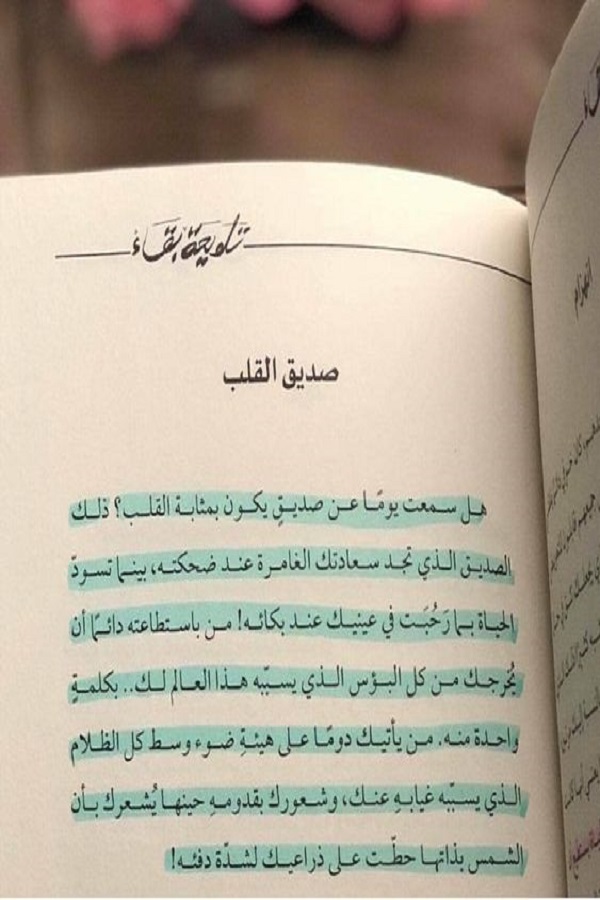 تلويحة بقاء
صديق القلب
هل سمعت يومًا عن صديقٍ يكون بمثابة القلب؟ ذلك
الصديق الذي تجد سعادتك الغامرة عند ضحكته، بينما تسودّ
الحياة بما رَحُبَت في عينيك عند بكائه! من باستطاعته دائمًا أن
يُخرجك من كل البؤس الذي يسبّبه هذا العالم لك.. بكلمةٍ
واحدة منه. من يأتيك دومًا على هيئةِ ضوء وسط كل الظلام
الذي يسببّه غيابهِ عنك، وشعورك بقدومهِ حينها يُشعرك بأن
الشمس بذاتها حطّت على ذراعيك لشدّة دفئه!
انهزام